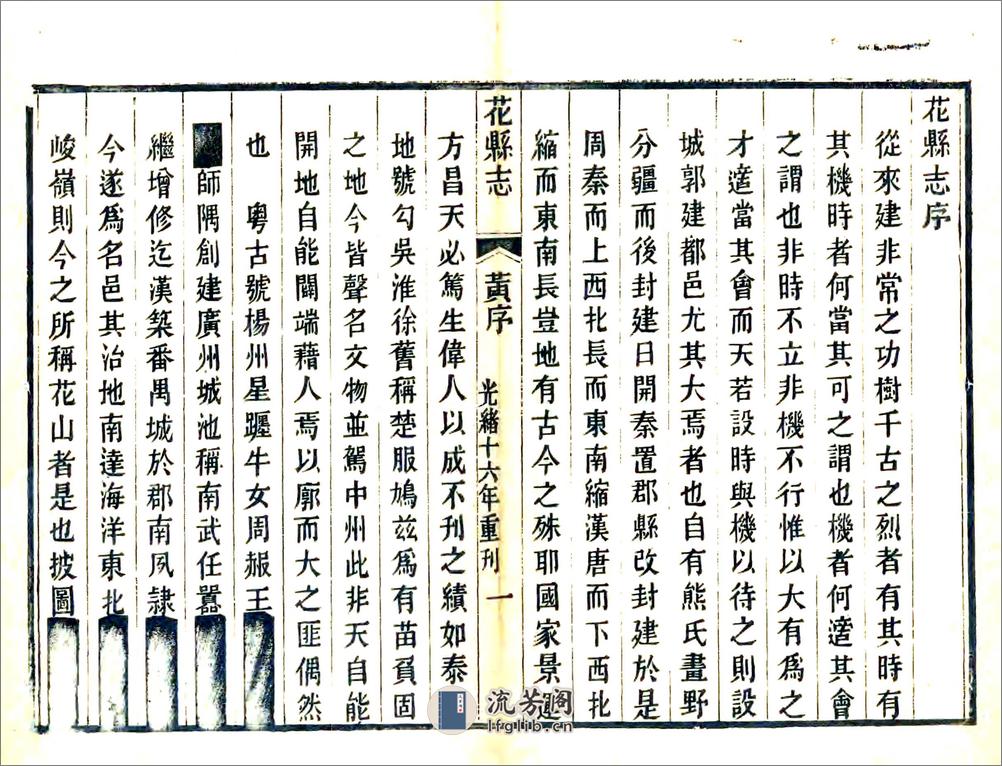 花縣志序
從來建非常之功樹千古之烈者有其時有
其機時者何當其可之謂也機者何適其會
之謂也非時不立非機不行惟以大有爲之
才適當其會而天若設時與機以待之則設
城郭建都邑尤其大焉者也自有熊氏畫野
分疆而後封建日開秦置郡縣改封建於是
周秦而上西北長而東南縮漢唐而下西北
縮而東南長豈地有古今之殊耶國家景
花縣志 黃序 光緒十六年重刊 一
方昌天必篤生偉人以成不刊之績如泰
地號勾吳淮徐舊稱楚服鳩茲爲有苗負固
之地今皆聲名文物並駕中州此非天自能
開地自能闢端藉人焉以廓而大之匪偶然
也 粵古號楊州星躔牛女周赧王
師隅創建廣州城池稱南武任囂
繼增修迄漢築番禺城於郡南夙隸
今遂爲名邑其治地南達海洋東北
峻嶺則今之所稱花山者是也披圖
流芳閣
lfglib.cn